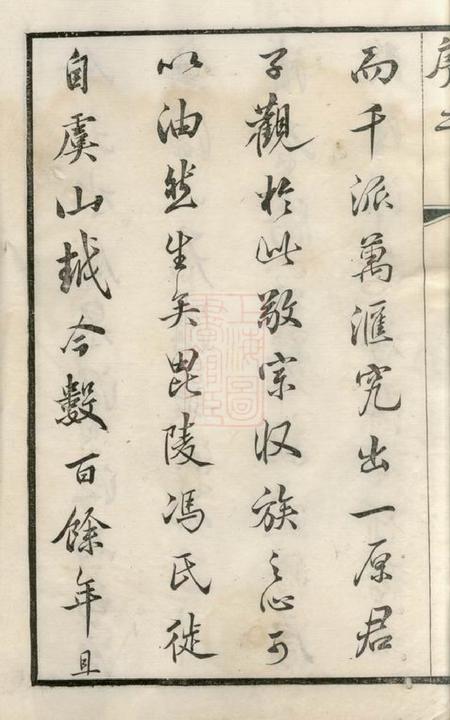 序二
而千派萬滙究出一原君
子觀於此敬宗収族之心可
以油然生矣毘陵馮氏徙
自虞山越今數百餘年且
上海圖書館藏